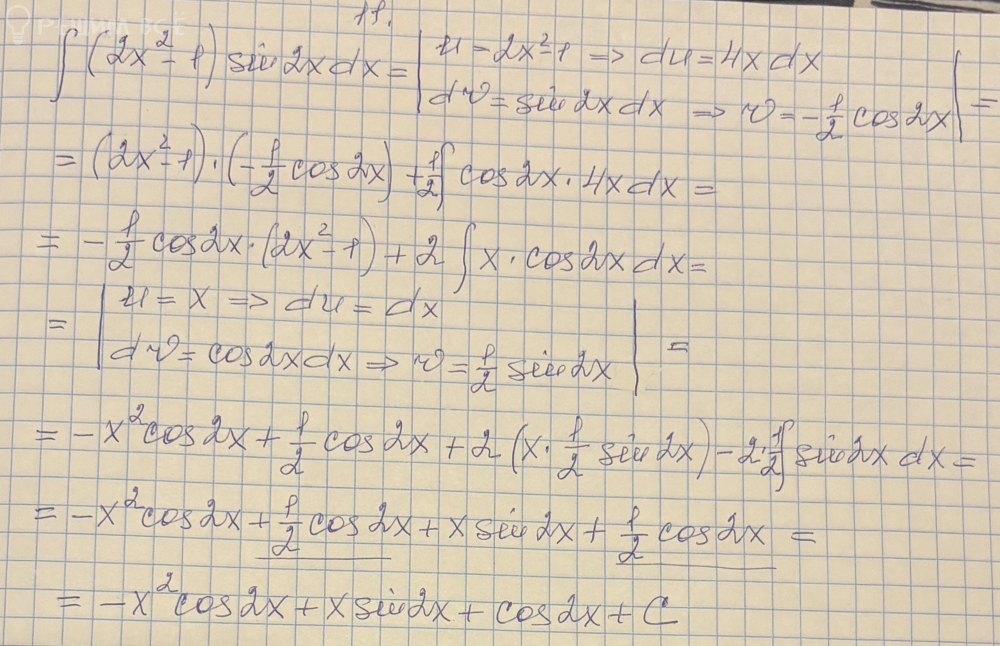 РЕШИМ ВСЁ
11.
∫ (2x² - 1) sin 2x dx = | u = 2x² - 1 => du = 4x dx
dv = sin 2x dx => v = -1/2 cos 2x | =
= (2x² - 1) · (-1/2 cos 2x) + 1/2 ∫ cos 2x · 4x dx =
= -1/2 cos 2x · (2x² - 1) + 2 ∫ x · cos 2x dx =
= | u = x => du = dx
dv = cos 2x dx => v = 1/2 sin 2x | =
= -x² cos 2x + 1/2 cos 2x + 2 (x · 1/2 sin 2x) - 2 · 1/2 ∫ sin 2x dx =
= -x² cos 2x + 1/2 cos 2x + x sin 2x + 1/2 cos 2x =
= -x² cos 2x + x sin 2x + cos 2x + C